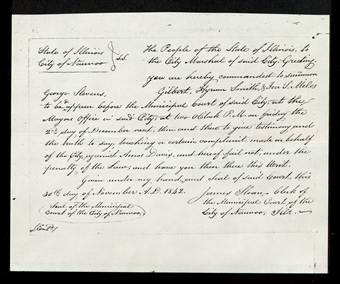 State of Illinois
City of Nauvoo
SS.
The People of the State of Illinois, to
the City Marshal of said City, Greeting
you are hereby commanded to summon
George Stevens, Gilbert, Hyrum Smith, & Geo. S. Miles
to be & appear before the Municipal Court of said City, at the
Mayors Office in said City, at two O'Clock P.M. on friday the
2nd day of December next, then and there to give testimony and
the truth to say, touching a certain complaint made on behalf
of the City, against Amos Davis, and hereof fail not, under the
penalty of the Law; and have you then there this Writ.
Given under my hand, and seal of said Court, this
30th day of November A.D. 1842.
James Sloan, Clerk of
the Municipal Court of the
City of Nauvoo,
Seal of the Municipal
Court of the City of Nauvoo